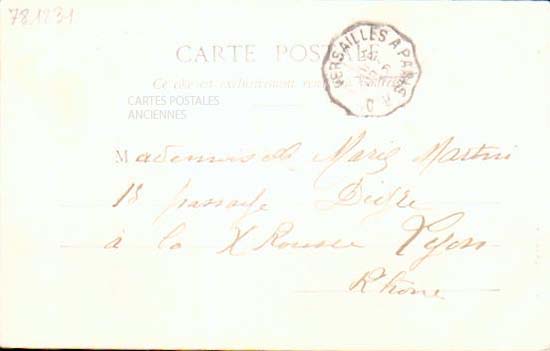 781231
VERSAILLES A PARIS
CARTE POSTALE
Ce côté est exclusivement
CARTES POSTALES
ANCIENNES
Mademoiselle Marie Martini
18 passage Dieyre
à la X Rousse Lyon
Rhone